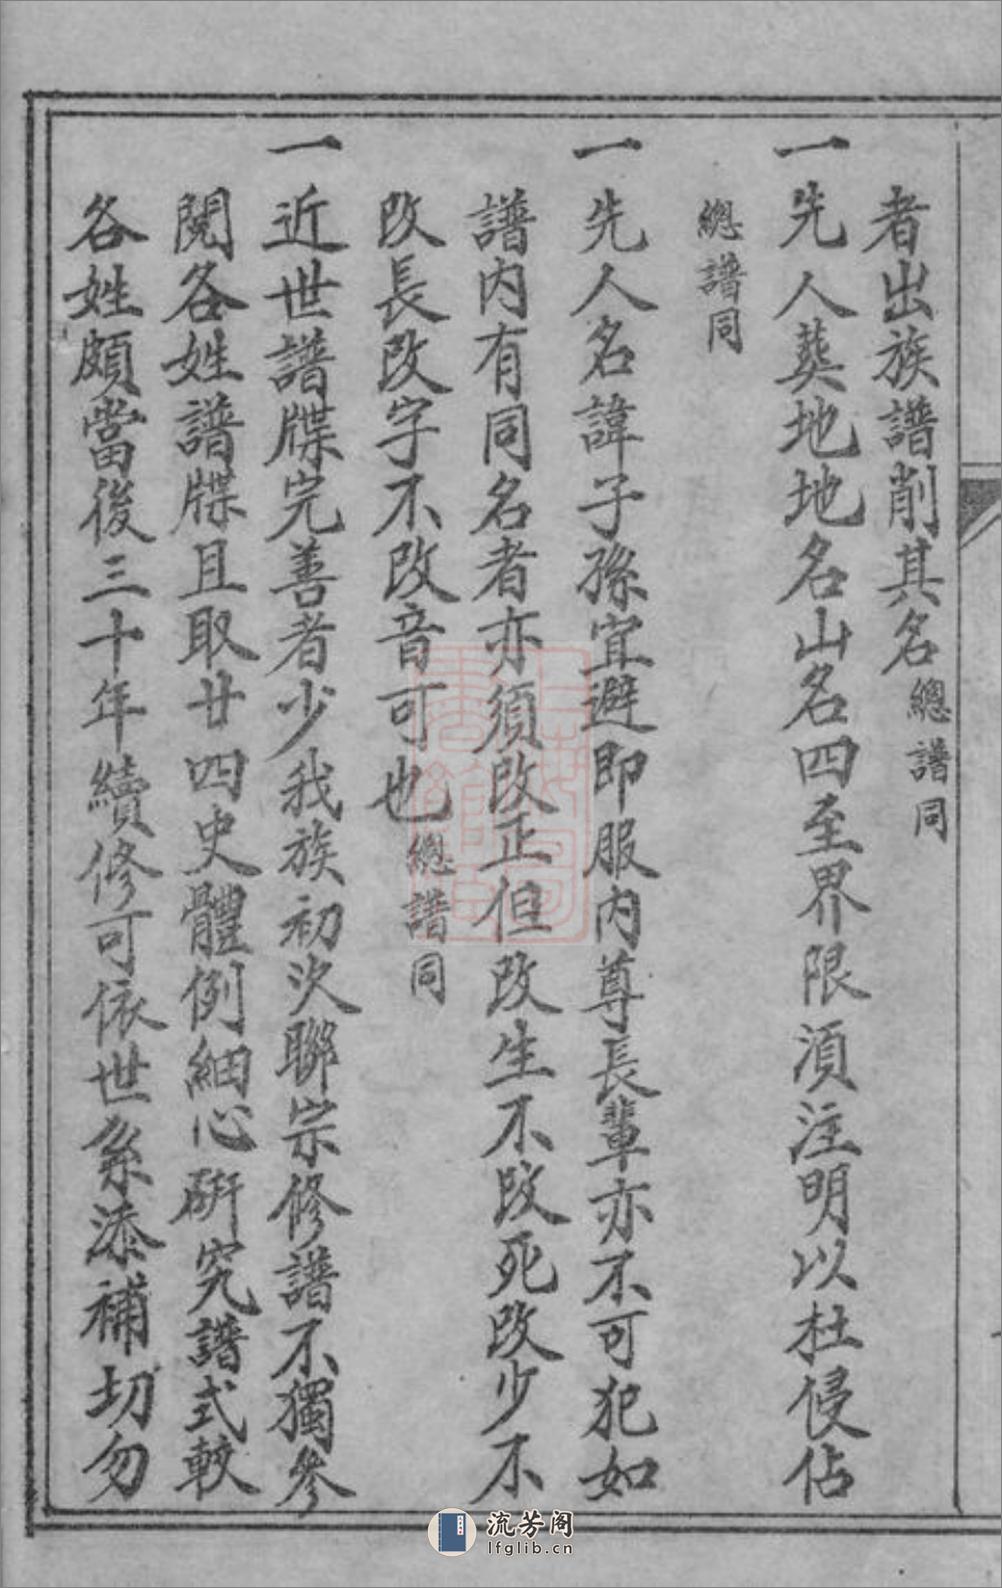 者出族譜削其名總譜同
一先人葬地地名山名四至界限須注明以杜侵佔
總譜同
一先人名諱子孫宜避即服內尊長輩亦不可犯如
譜內有同名者亦須改正但改生不改死改少不
改長改字不改音可也總譜同
一近世譜牒完善者少我族初次聯宗修譜不獨參
閱各姓譜牒且取廿四史體例細心研究譜式較
各姓頗當後三十年續修可依世系添補切勿
流芳阁
lfglib.cn